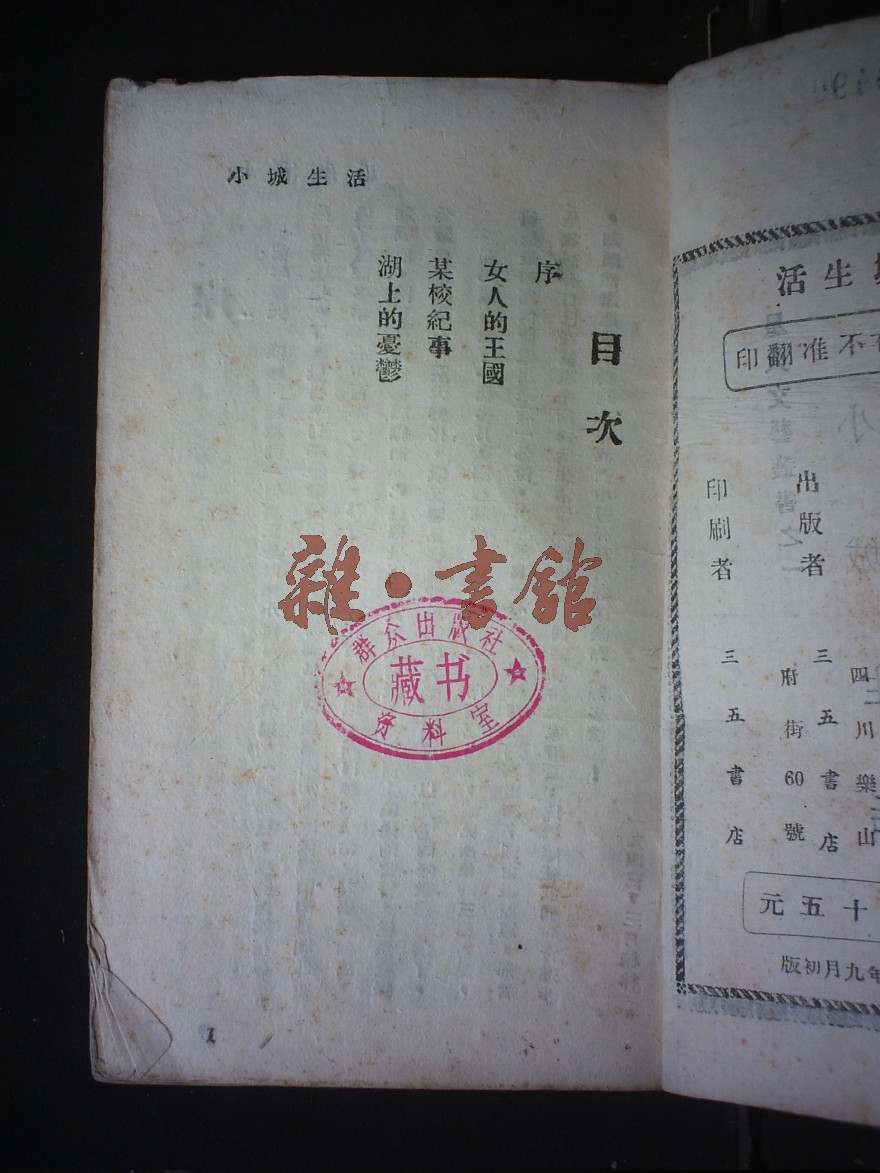 小城生活
目次
序
女人的王國
某校紀事
湖上的憂鬱
雜·書館
群众出版社
藏书
资料室
1
生活
不准翻印
出版者
四川樂山
三五書店
府街60號
印刷者
三五書店
十五元
年九月初版